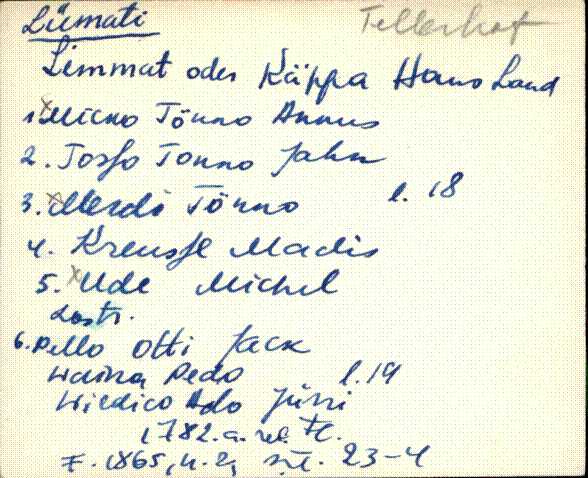 Lümati Tellerhof
Limmat oder Käppa Hans Land
1. Micko Tönno Annus
2. Tosso Tonno Jahn
3. Merdi Tönno l. 18
4. Kreusse Madis
5. Ude Michel
Lostr.
6. Pello Otti Jack
Waina Pedo l. 19
Wirdico Ado Jürri
1782. a. rel.
F. 1865, n. 2, s. 23-4